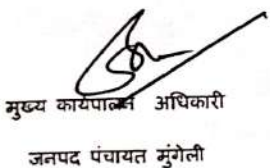 मुख्य कार्यपालन अधिकारी
जनपद पंचायत मुंगेली